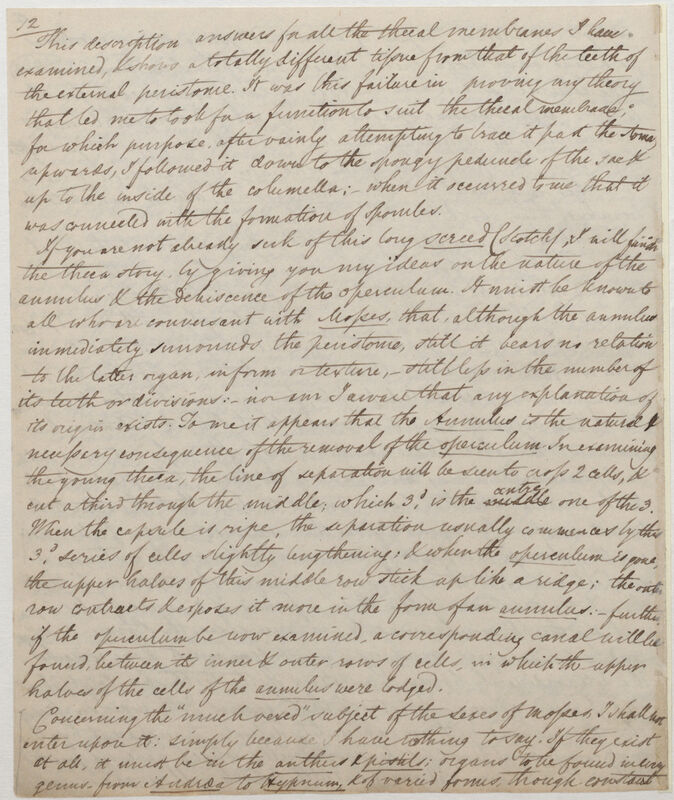 12
This description answers for all the thecal membranes I have
examined, & shows a totally different tissue from that of the teeth of
the external peristome. It was this failure in proving my theory
that led me to look for a function to suit the thecal membrane;
for which purpose, after vainly attempting to trace it past the stoma
upwards, I followed it down to the spongy peduncle of the sac &
up to the inside of the columella; – when it occurred to me that it
was connected with the formation of sporules.
If you are not already sick of this long screed (Scotch), I will finish
the theca story, by giving you my ideas on the nature of the
annulus & the dehiscence of the operculum. It must be known to
all who are conversant with Mosses, that, although the annulus
immediately surrounds the peristome, still it bears no relation
to the latter organ, in form or texture, – still less in the number of
its teeth or divisions: – nor am I aware that any explanation of
its origin exists. To me it appears that the Annulus is the natural &
necessary consequence of the removal of the operculum. In examining
the young theca, the line of separation will be seen to cross 2 cells, &
cut a third through the middle; which 3d is the middle centre one of the 3.
When the capsule is ripe, the separation usually commences by this
3d series of cells slightly lengthening; & when the operculum is gone,
the upper halves of this middle row stick up like a ridge; the outer
row contracts & exposes it more in the form of an annulus: – further
if the operculum be now examined, a corresponding canal will be
found, between its inner & outer rows of cells, in which the upper
halves of the cells of the annulus were lodged.
Concerning the "much vexed" subject of the sexes of mosses, I shall not
enter upon it: simply because I have nothing to say. If they exist
at all, it must be in the anthers & pistils: organs to be found in every
genus from Andræa to Hypnum, & of varied forms, though constant